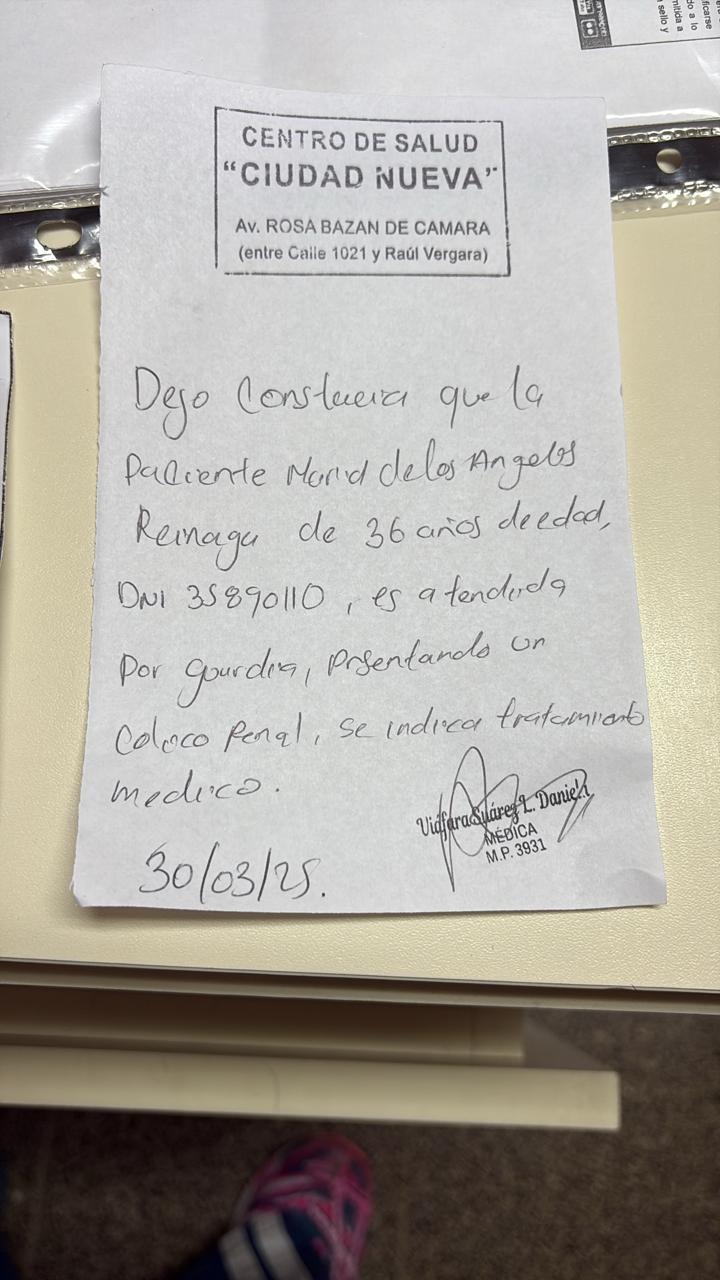 CENTRO DE SALUD
“CIUDAD NUEVA”
Av. ROSA BAZAN DE CAMARA
(entre Calle 1021 y Raúl Vergara)
Dejo Constancia que la
paciente Maria de los Angeles
Reinaga de 36 años de edad,
DNI 35890110, es atendida
por guardia, presentando un
Colico Renal, se indica tratamiento
medico.
Suárez L. Daniela
MÉDICA
M.P. 3931
30/03/25.
ficarse
do a lo
mitida a
sello y